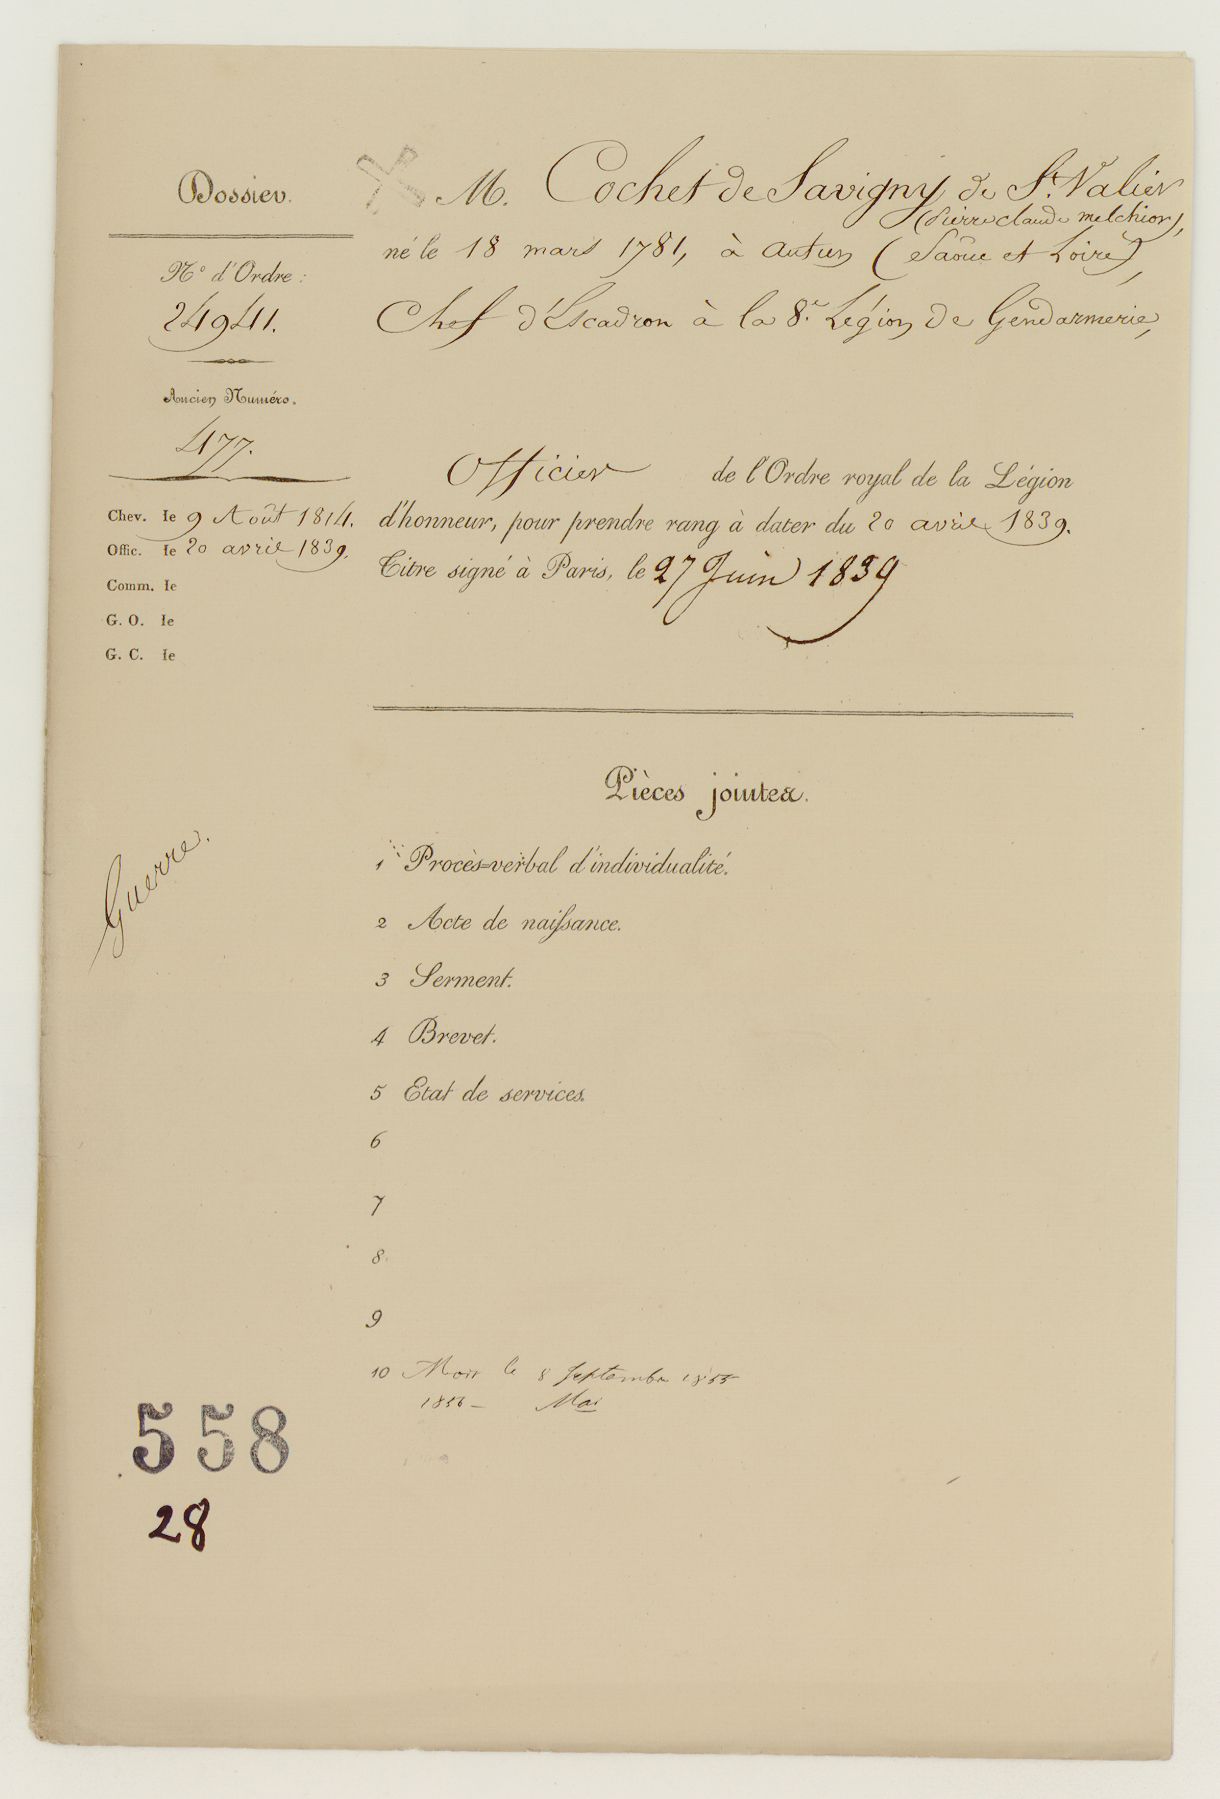 Dossier.
N° d'Ordre:
24941.
Ancien Numéro.
477.
Chev. le 9 Août 1814.
Offic. le 20 avril 1839.
Comm. le
G. O. le
G. C. le
Guerre.
M. Cochet de Savigny de St. Valier
(Pierre claude melchior),
né le 18 mars 1781, à autun (Saône et Loire),
Chef d'Escadron à la 8e. Légion de Gendarmerie,
Officier de l'Ordre royal de la Légion
d'honneur, pour prendre rang à dater du 20 avril 1839.
Titre signé à Paris, le 27 Juin 1839
Pièces jointes.
1 Procès=verbal d'individualité.
2 Acte de naissance.
3 Serment.
4 Brevet.
5 Etat de services.
6
7
8.
9
10 Mort le 8 Septembre 1855
1856 - Mai
558
28